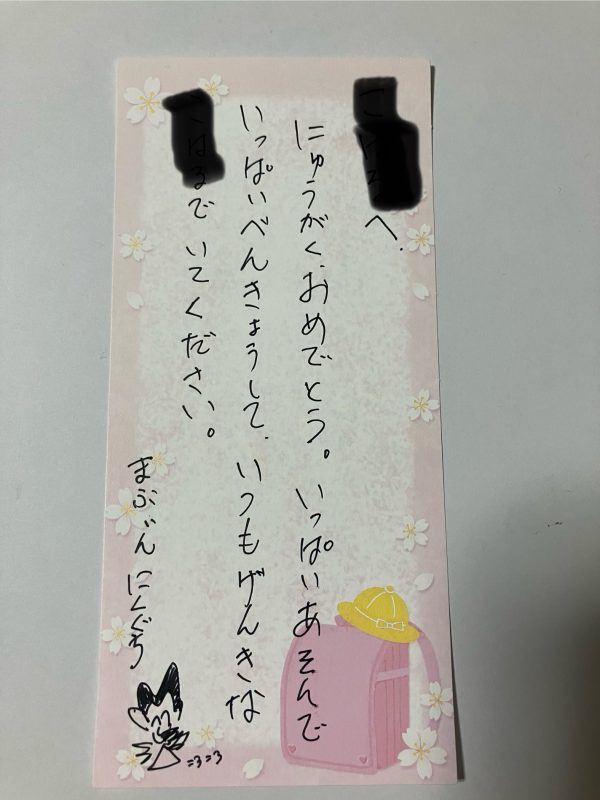 へ.
にゅうがく、おめでとう。いっぱいあそんで
いっぱいべんきょうして、いつもげんきな
でいてください。
=3=3